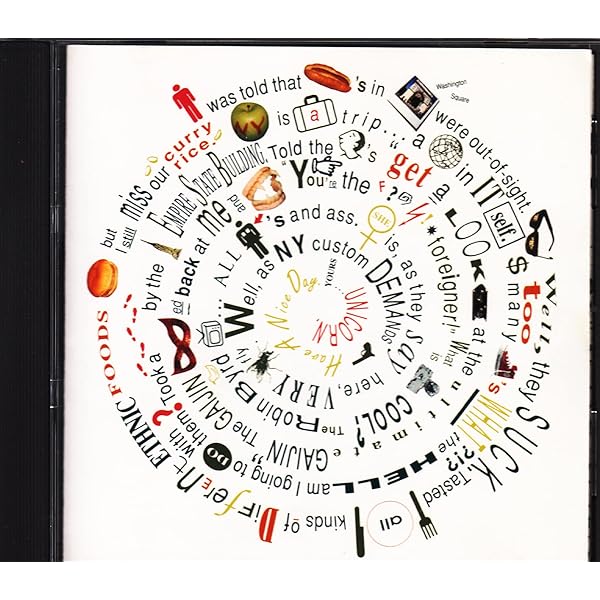 was told that 's in Washington Square were out-of-sight.
Well, they SUCK. Tasted
all kinds Of DiFferEnt ETHNIC FOODS
but I still miss our curry rice.
NY is a trip... a in IT self.
$ too many 's WHAT ?!? the HELL am I going to DO with them?
Took a by the EMPIRE STATE BUILDING.
Told the 's get all LOOK at the ultimate GAIJIN,
The GAIJIN ed back at me and
"You're the F?@ !' foreigner!" What is COOL?
The Robin Byrd ... ALL 's and ass.
SHE is, as they say here, VERY fly
Well, as NY custom DEMANDS
Have A Nice Day.
YOURS.....
UNICORN.